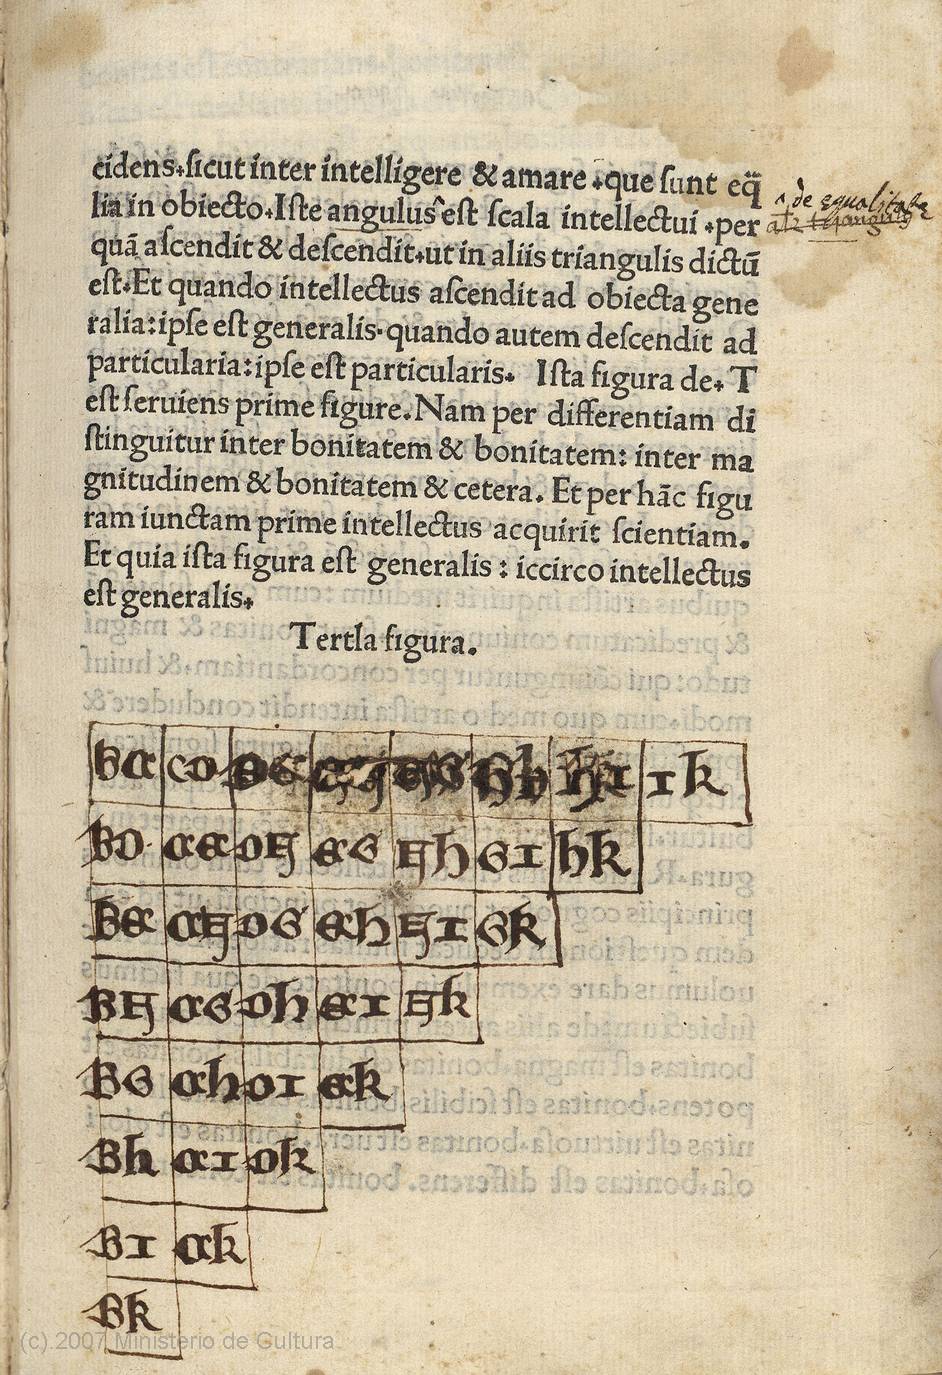 cidens.sicut inter intelligere & amare.que sunt eq̃
lia in obiecto.Iste angulus^est scala intellectui.per
quã ascendit & descendit.ut in aliis triangulis dictũ
est.Et quando intellectus ascendit ad obiecta gene
ralia:ipse est generalis.quando autem descendit ad
particularia:ipse est particularis. Ista figura de. T
est seruiens prime figure.Nam per differentiam di
stinguitur inter bonitatem & bonitatem: inter ma
gnitudinem & bonitatem & cetera. Et per hãc figu
ram iunctam prime intellectus acquirit scientiam.
Et quia ista figura est generalis : iccirco intellectus
est generalis.
^ de equalitate
Tertia figura.
BC CD DE hI Ik
BD CE DF EG Fh GI hk
BE CF DG Eh FI Gk
BF CG Dh EI Fk
BG Ch DI Ek
Bh CI Dk
BI Ck
Bk
(c) 2007 Ministerio de Cultura